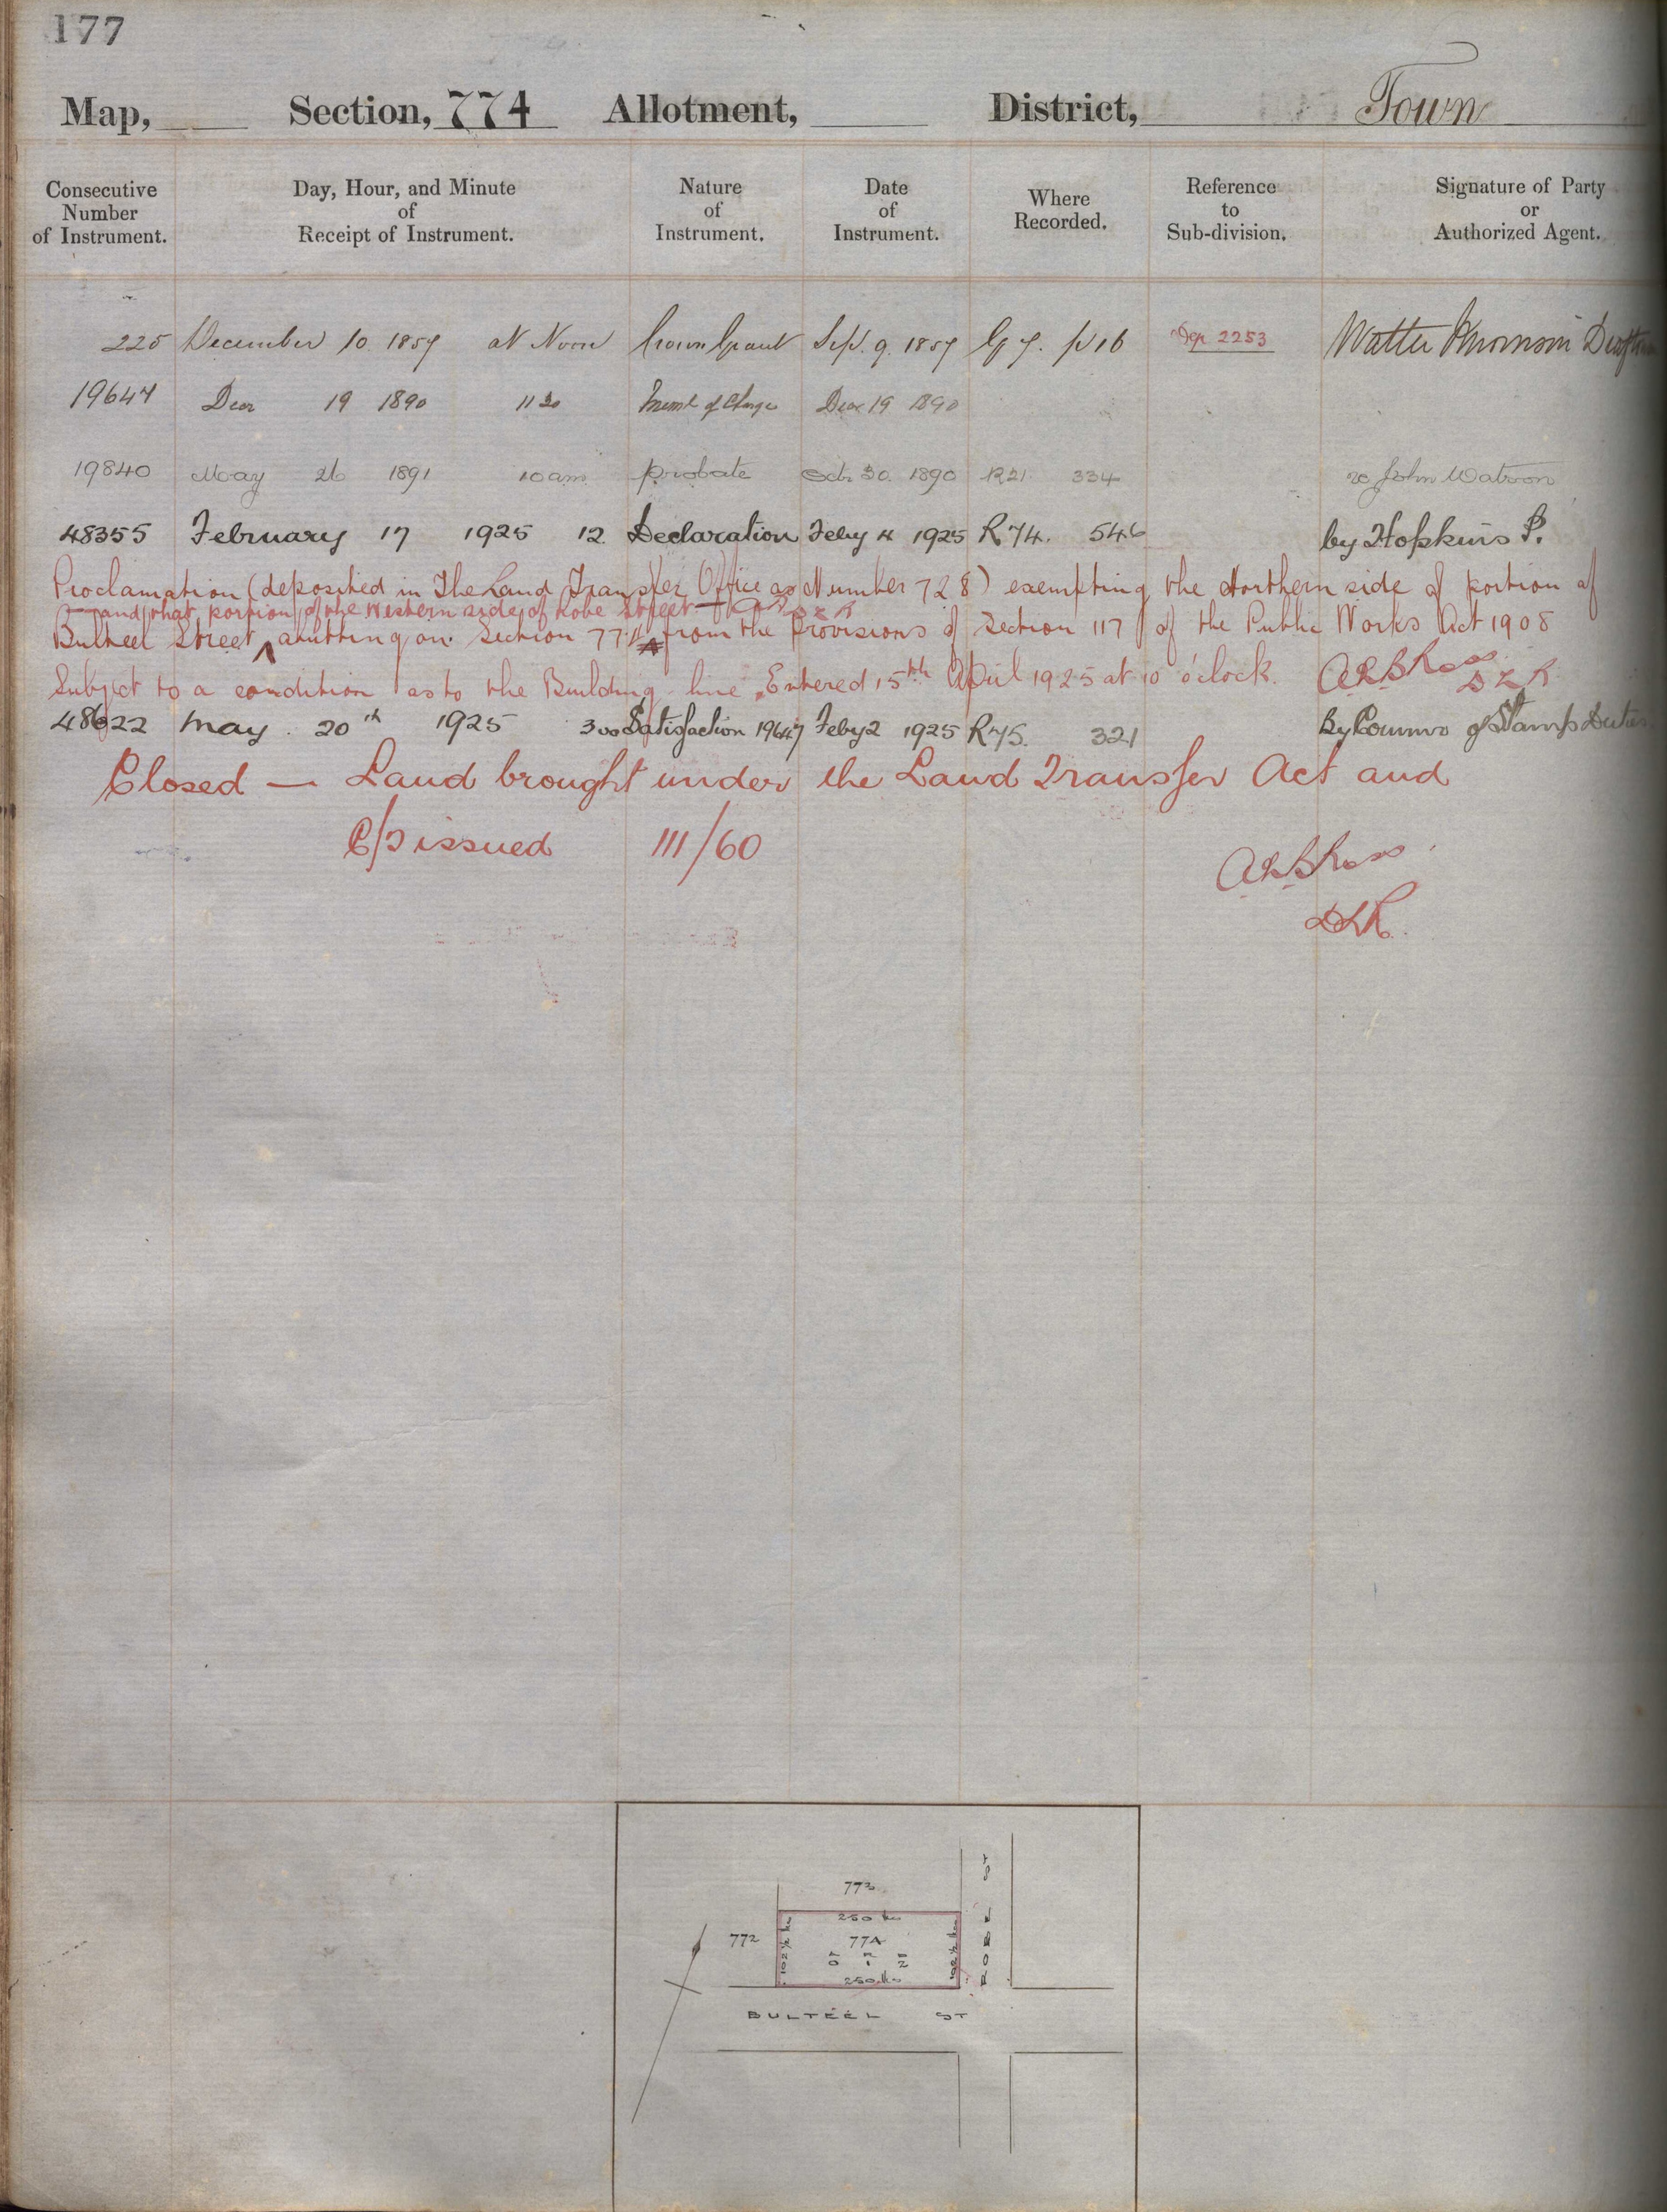 177
Map, Section, 774 Allotment, District, Town
Consecutive Number of Instrument. Day, Hour, and Minute of Receipt of Instrument. Nature of Instrument. Date of Instrument. Where Recorded. Reference to Sub-division. Signature of Party or Authorized Agent.
225 December 10 1857 at Noon Crown Grant Sep. 9. 1857 G 7. p 16 Dep 2253 Walter
19647 Decr 19 1890 11 30 Meml of Charge Decr 19 1890
19840 May 26 1891 10 am probate Octr 30. 1890 R21 334 re John Watson
48355 February 17 1925 12 Declaration Feby 4 1925 R 74. 546 by Hopkins P.
Proclamation (deposited in The Land Transfer Office as Number 728) exempting the Northern side of portion of
and that portion of the Western side of Robe Street DLR
Bulteel Street abutting on Section 774 from the Provisions of Section 117 of the Public Works Act 1908
Subject to a condition as to the Building line Entered 15th April 1925 at 10 o'clock. DLR
48622 May 20th 1925 3 00 Satisfaction 19647 Feby 2 1925 R 75. 321 By Commr of Stamp Duties
Closed — Land brought under the Land Transfer Act and
C/T issued 111/60
DLR.
773
250 lks
772
102½ lks
774
0 1 1
102½ lks
250 lks
ROBE ST
BULTEEL ST